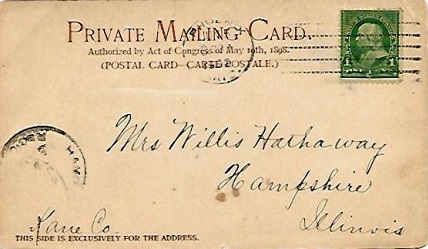 PRIVATE MAILING CARD.
Authorized by Act of Congress of May 19th, 1898.
(POSTAL CARD—CARTE POSTALE.)
Mrs Willis Hathaway
Hampshire
Illinois
Kane Co.
THIS SIDE IS EXCLUSIVELY FOR THE ADDRESS.